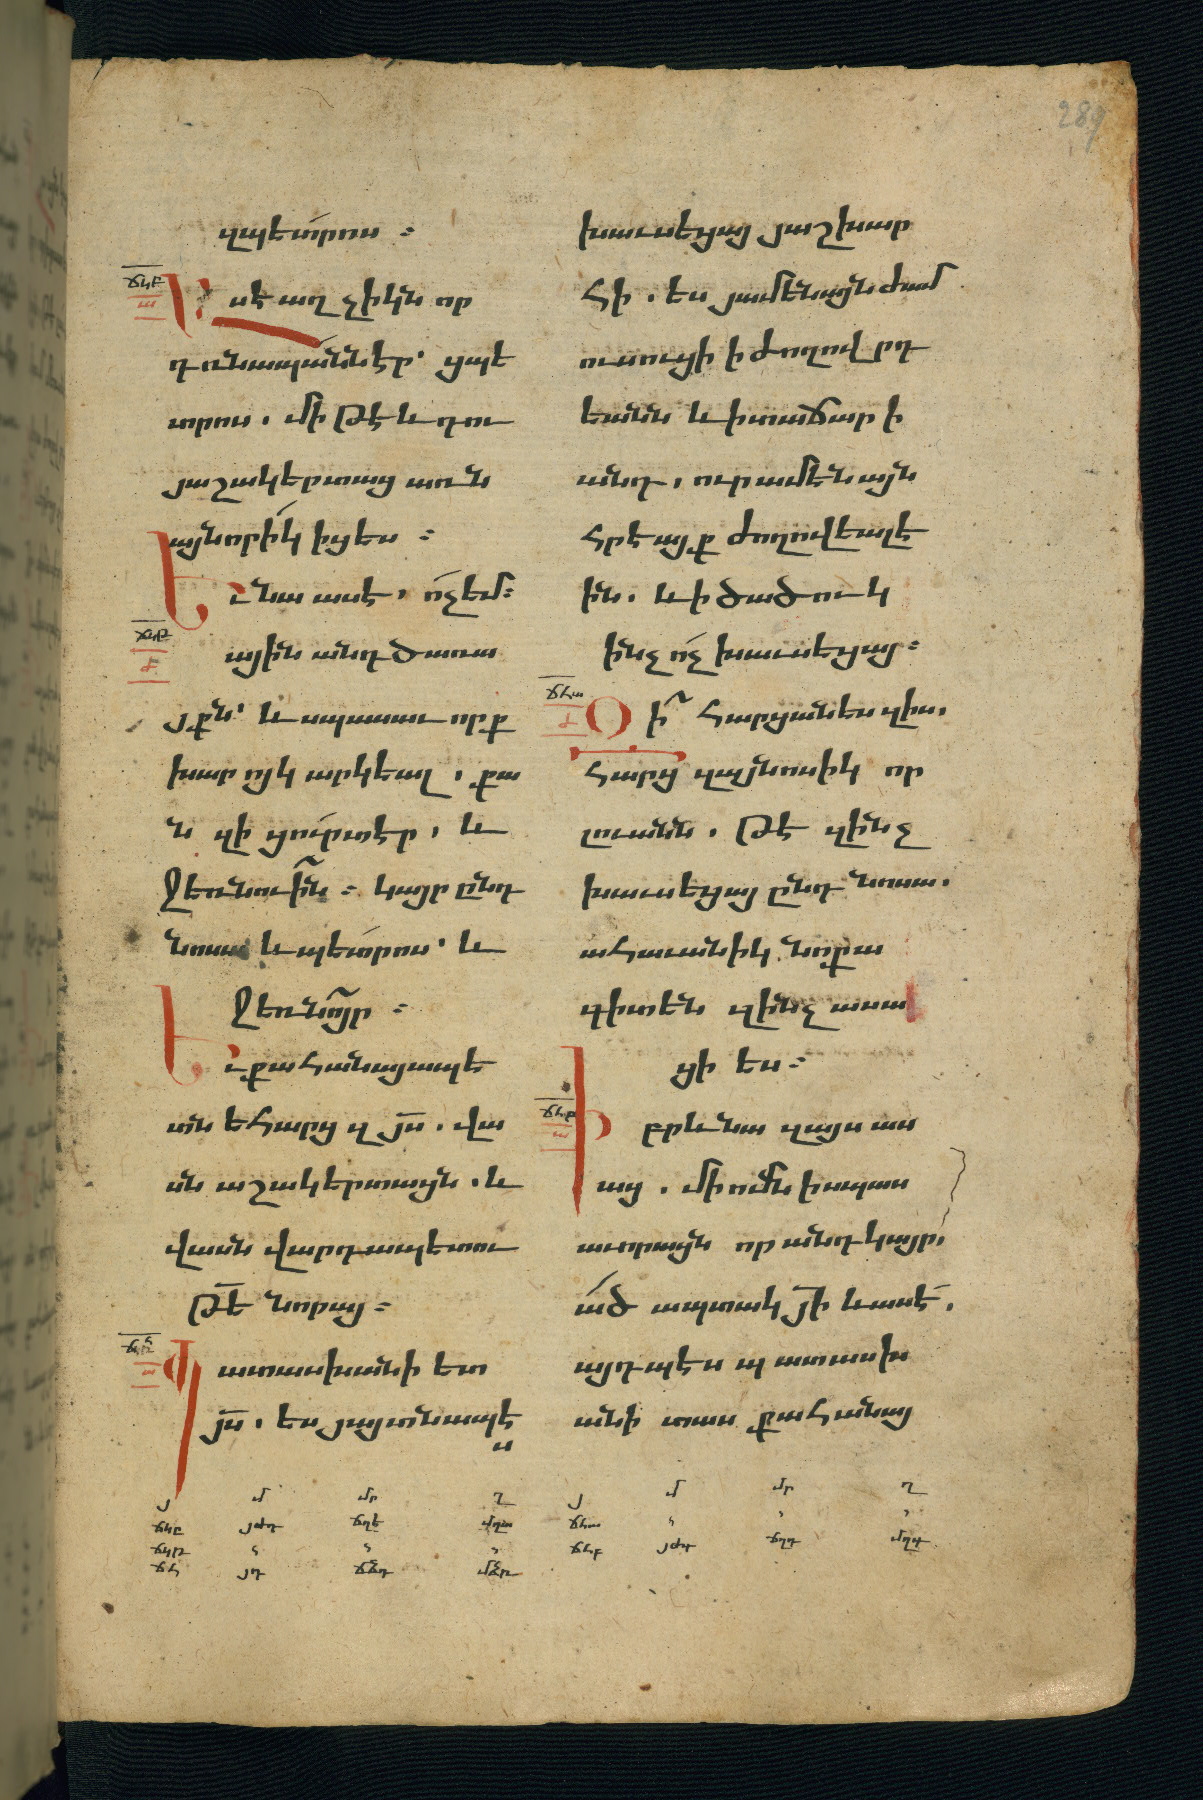 289
զպետրոս ։
ճկը
ա
Ասէ աղջիկն որ
դռնապանն էր՝ ցպե
տրոս . մի թէ և դու
յաշակերտաց առն
այնորիկ իցես ։
Եւ նա ասէ , ո՛չ եմ ։
ճկթ
ային անդ ծառա
յքն՝ և սպասաւորք
խարոյկ արկեալ , քա
ն զի ցուրտ էր , և
ջեռնուին ։ կայր ընդ
նոսա և պետրոս՝ և
ջեռնոյր ։
Եւ քահանայապե
տն եհարց զյս . վա
սն աշակերտացն . և
վասն վարդապետու
թե նորայ ։
ճհ
Պատասխանի ետ
յս . ես յայտնապէ
ս
խաւսեցայ յաշխար
հի . ես յամենայն ժամ
ուսուցի ի ժողովրդ
եանն և ի տաճարի
անդ , ուր ամենայն
հրեայք ժողովեալ է
ին . և ի ծածուկ
ինչ ո՛չ խաւսեցայ ։
ճհա
Զի հարցանես զիս ,
հարց զայնոսիկ որ
լուանն . թէ զինչ
խաւսեցայ ընդ նոսա .
ահաւանիկ նոքա
գիտեն զինչ ասա
ցի ես ։
ճհբ
Իբրև նա զայս աս
աց . մի ոմն ի սպաս
աւորացն որ անդ կայր ,
ած ապտակ յի և ասէ .
այդպէս պատասխ
անի տաս քահանայ
յ մ մր ղ
ճկը յժդ ճղէ մղա
ճկթ
ճհ յդ
յ մ մր ղ
ճհա
ճհբ յժգ ճղդ մղգ